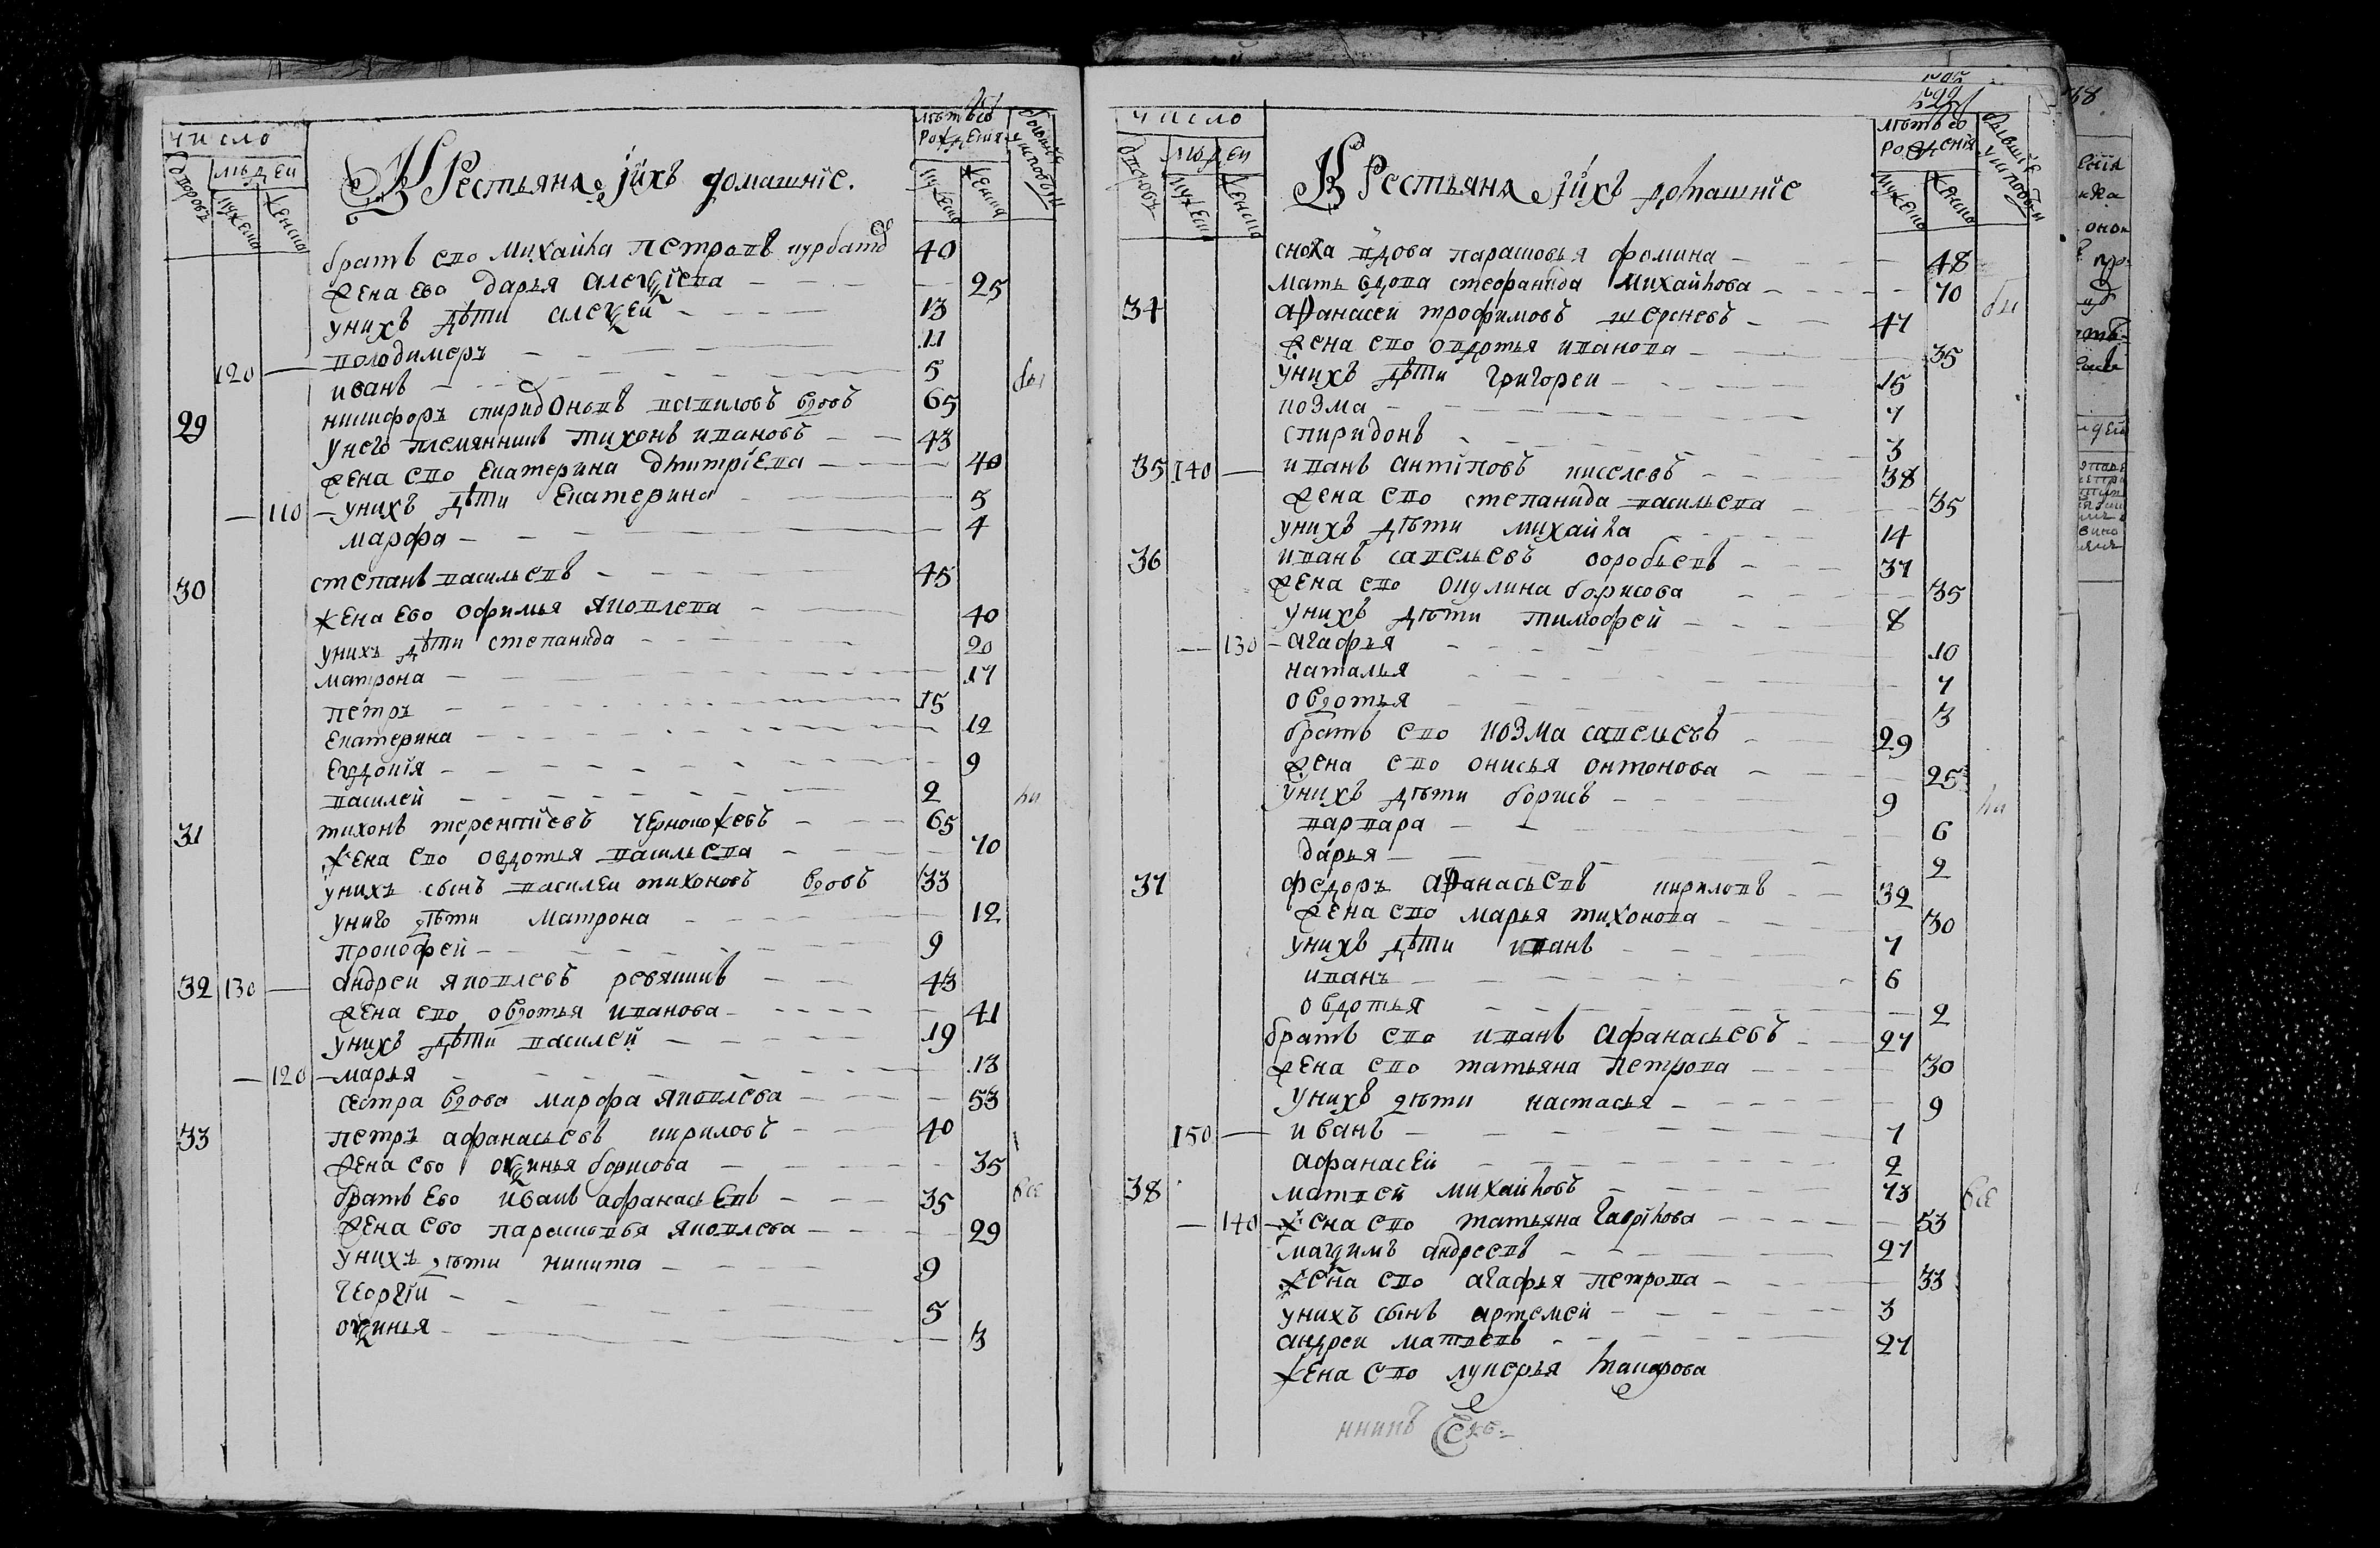 число
дворовъ
людей
мужеска
женска
Крестьяна ихъ домашніе.
лѣтъ со рожденія
мужеска
женска
бывшія у исповѣди
братъ ево Михайла Петровъ курбатов 40
жена ево дарья алеѯіева 25
унихъ дѣти алеѯей 13
володимеръ 11
120 иванъ 5 бы
29 никифоръ спиридоновъ вавиловъ вдовъ 65
унего племянникъ тихонъ ивановъ 43
жена ево екатерина дмитріева 40
110 унихъ дѣти Екатерина 5
марфа 4
30 степанъ васильевъ 45
жена ево офимья яковлева 40
унихъ дѣти степанида 20
матрона 17
петръ 15
екатерина 12
евдокія 9
василей 2 ли
31 тихонъ терентиевъ черноножевъ 65
жена ево овдотья васильева 70
унихъ сынъ василеи тихоновъ вдовъ 33
униго дѣти Матрона 12
прокофей 9
32 130 андреи яковлевъ ревякинъ 43
жена ево овдотья иванова 41
унихъ дѣти василей 19
120 марья 13
сестра вдова марфа яковлева 53
33 петръ афанасьевъ кириловъ 40
жена ево оѯинья борисова 35
братъ ево иванъ афанасьевъ 35 все
жена ево парасковья яковлева 29
унихъ дѣти никита 9
георгіи 5
оѯинья 3
число
дворовъ
людей
мужеска
женска
Крестьяна ихъ домашніе
лѣтъ со рожденія
мужеска
женска
бывшіе у исповѣди
сноха вдова парасковья фомина 48
мать вдова стефанида Михайлова 70
34 афанасеи трофимовъ шерсневъ 47 бы
жена ево овдотья иванова 35
унихъ дѣти григореи 15
козма 7
спиридонъ 3
35 140 иванъ антиповъ киселевъ 38
жена ево степанида васильева 35
унихъ дѣти михайла 14
36 иванъ савельевъ воробьевъ 37
жена ево окулина борисова 35
унихъ дѣти тимофей 8
130 агафья 10
наталья 7
овдотья 3
братъ ево козма савельевъ 29
жена ево онисья онтонова 25
унихъ дѣти борисъ 9 ли
варвара 6
дарья 2
37 федоръ афанасьевъ кириловъ 32
жена ево марья тихонова 30
унихъ дѣти иванъ 7
иванъ 6
овдотья 2
братъ ево иванъ афанасьевъ 27
жена ево татьяна петрова 30
унихъ дѣти настасья 9
150 иванъ 7
афанасей 2
38 матвей михайловъ 73 все
140 жена ево татьяна гаврілова 53
маѯимъ андреевъ 27
жена ево агафья петрова 33
унихъ сынъ артемей 3
андреи матвевъ 27
жена ево лукерья макарова